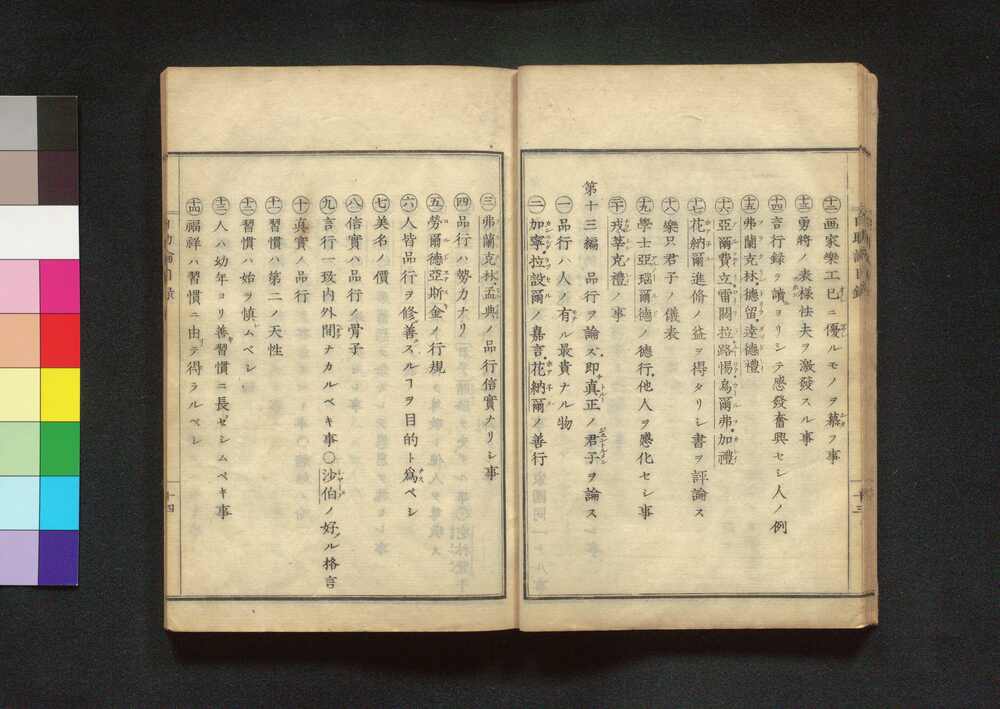 自助論目錄
㊉二画家樂工已ニ優ルモノヲ慕フ事
㊉三勇將ノ表樣怯夫ヲ激發スル事
㊉四言行録ヲ讀ヨリシテ感發奮興セシ人ノ例
㊉五弗蘭克林德留逹德禮
㊉六亞爾費立雷閼拉路惕烏爾弗加禮
㊉七花納爾進脩ノ益ヲ得タリシ書ヲ評論ス
㊉八樂只君子ノ儀表
㊉九學士亞瑙爾德ノ德行他人ヲ感化セシ事
㊁㊉戎莘克禮ノ事
第十三編 品行ヲ論ズ即真正ノ君子ヲ論ス
㊀品行ハ人ノ有ル最貴ナル物
㊁加寧拉設爾ノ嘉言花納爾ノ善行
十三
㊂弗蘭克林孟典ノ品行信實ナリシ事
㊃品行ハ勢力ナリ
㊄勞爾德亞斯金ノ行規
㊅人皆品行ヲ修善スルヿヲ目的ト為ベシ
㊆美名ノ價
㊇信實ハ品行ノ骨子
㊈言行一致内外間ナカルベキ事〇沙伯ノ好ル格言
㊉真實ノ品行
㊉一習慣ハ第二ノ天性
㊉二習慣ハ始ヲ慎ムベシ
㊉三人ハ幼年ヨリ善習慣ニ長ゼシムベキ事
㊉四福祥ハ習慣ニ由テ得ラルベシ
十四